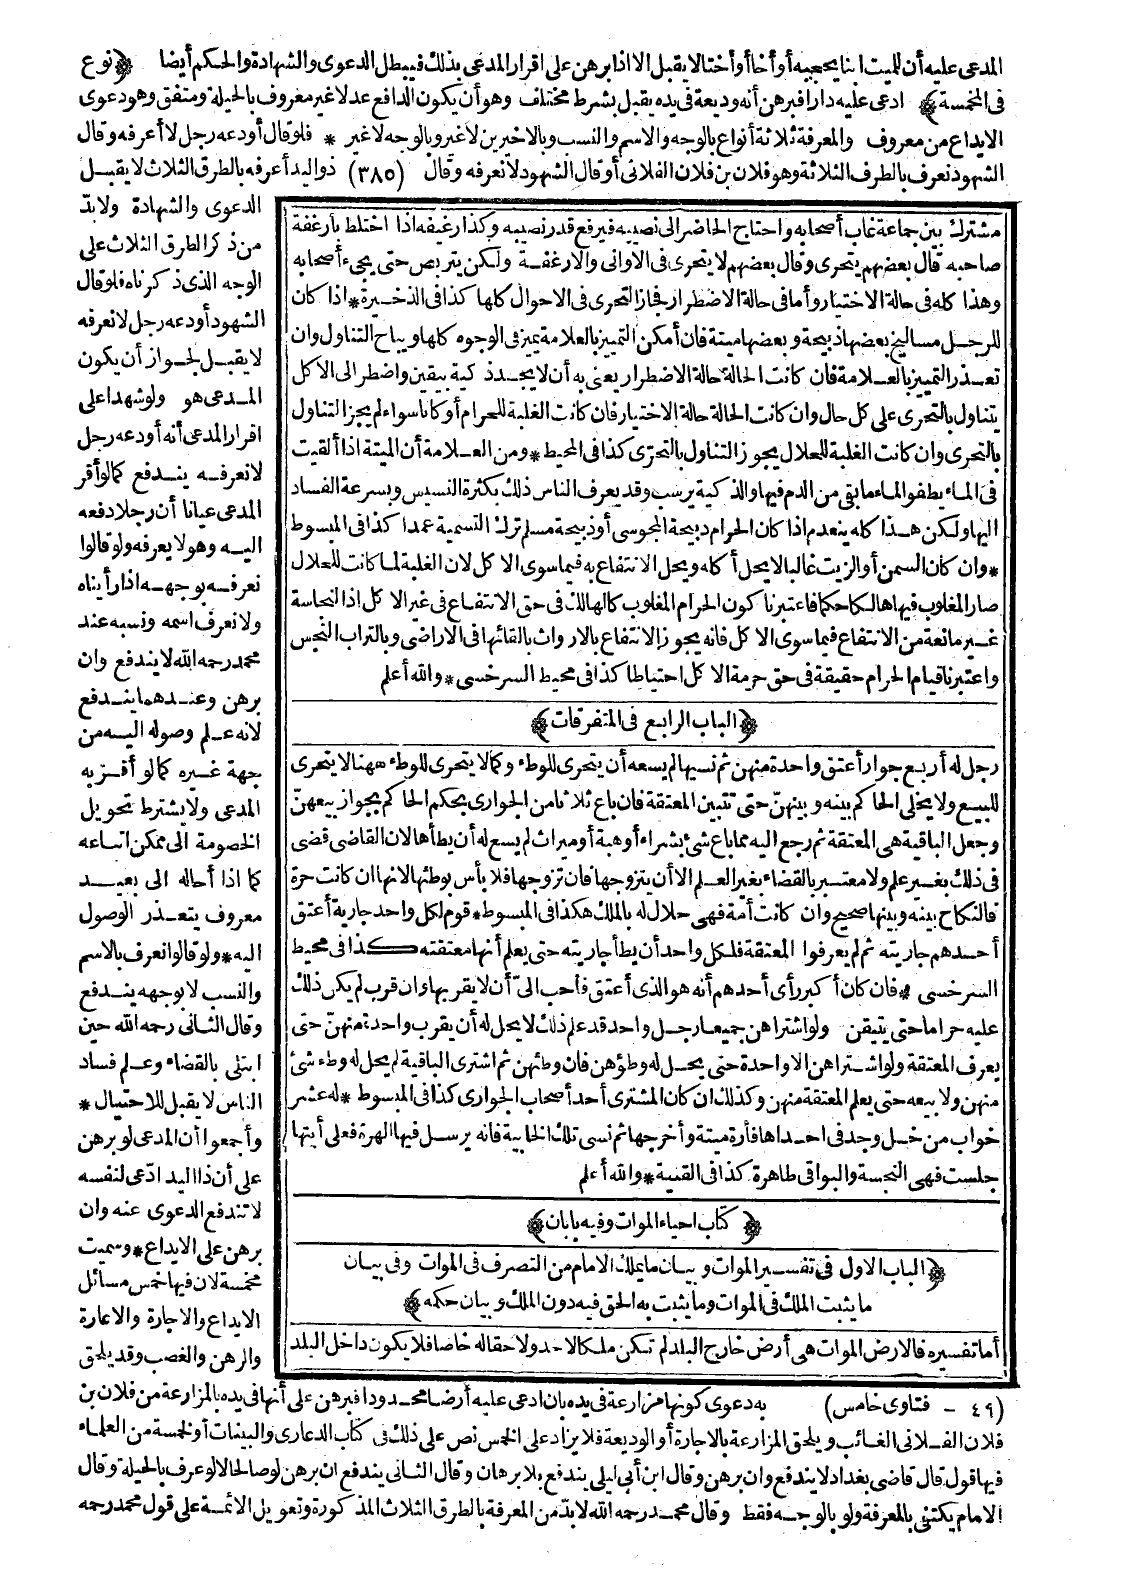 المدعى عليه أن للميت ابنا يحجبه أو أخا أو أختا لا يقبل الا اذا برهن على اقرار المدعى بذلك فيبطل الدعوى والشهادة والحكم أيضا ﴿نوع
فى المخمسة﴾ ادعى عليه دارا فبرهن أنه وديعة فى يده يقبل بشرط مختلف وهو أن يكون الدافع عدلا غير معروف بالحيلة ومتفق وهو دعوى
الايداع من معروف والمعرفة ثلاثة أنواع بالوجه والاسم والنسب وبالاخيرين لا غير وبالوجه لا غير * فلو قال أودعه رجل لا أعرفه وقال
الشهود نعرف بالطرف الثلاثة وهو فلان بن فلان الفلانى أو قال الشهود لا نعرفه وقال (٣٨٥) ذو اليد أعرفه بالطرق الثلاث لا يقبل
مشترك بين جماعة غاب أصحابه واحتاج الحاضر الى نصيبه فيرفع قدر نصيبه وكذا رغيفه اذا اختلط بأرغفة
صاحبه قال بعضهم يتحرى وقال بعضهم لا يتحرى فى الاوانى والارغفة ولكن يتربص حتى يجىء أصحابه
وهذا كله فى حالة الاختيار وأما فى حالة الاضطرار فجاز التحرى فى الاحوال كلها كذا فى الذخيرة * اذا كان
للرجل مساليخ بعضها ذبيحة وبعضها ميتة فان أمكن التمييز بالعلامة يميز فى الوجوه كلها ويباح التناول وان
تعذر التمييز بالعلامة فان كانت الحالة حالة الاضطرار يعنى به أن لا يجد ذكية بيقين واضطر الى الاكل
يتناول بالتحرى على كل حال وان كانت الحالة حالة الاختيار فان كانت الغلبة للحرام أو كانا سواء لم يجز التناول
بالتحرى وان كانت الغلبة للحلال يجوز التناول بالتحرى كذا فى المحيط * ومن العلامة أن الميتة اذا ألقيت
فى الماء يطفو الماء ما بقى من الدم فيها والذكية يرسب وقد يعرف الناس ذلك بكثرة النسيس وبسرعة الفساد
اليها ولكن هذا كله ينعدم اذا كان الحرام ذبيحة المجوسى أو ذبيحة مسلم ترك التسمية عمدا كذا فى المبسوط
* وان كان السمن أو الزيت غالبا لا يحل أكله ويحل الانتفاع به فيما سوى الاكل لان الغلبة لما كانت للحلال
صار المغلوب فيها هالكا حكما فاعتبرنا كون الحرام المغلوب كالهالك فى حق الانتفاع فى غير الاكل اذ النجاسة
غير مانعة من الانتفاع فيما سوى الاكل فانه يجوز الانتفاع بالارواث بالقائها فى الاراضى وبالتراب النجس
واعتبرنا قيام الحرام حقيقة فى حق حرمة الاكل احتياطا كذا فى محيط السرخسى * والله أعلم
﴿الباب الرابع فى المتفرقات﴾
رجل له أربع جوار أعتق واحدة منهن ثم نسيها لم يسعه أن يتحرى للوطء وكما لا يتحرى للوطء ههنا لا يتحرى
للبيع ولا يخلى الحاكم بينه وبينهن حتى تتبين المعتقة فان باع ثلاثا من الجوارى بحكم الحاكم بجواز بيعهن
وجعل الباقية هى المعتقة ثم رجع اليه مما باع شئ بشراء أو هبة أو ميراث لم يسع له أن يطأها لان القاضى قضى
فى ذلك بغير علم ولا معتبر بالقضاء بغير العلم الا أن يتزوجها فان تزوجها فلا بأس بوطئها لانها ان كانت حرة
فالنكاح بينه وبينها صحيح وان كانت أمة فهى حلال له بالملك هكذا فى المبسوط * قوم لكل واحد جارية أعتق
أحدهم جاريته ثم لم يعرفوا المعتقة فلكل واحد أن يطأ جاريته حتى يعلم أنها معتقته كذا فى محيط
السرخسى * فان كان أكبر رأى أحدهم أنه هو الذى أعتق فأحب الىّ أن لا يقربها وان قرب لم يكن ذلك
عليه حراما حتى يتيقن ولو اشتراهن جميعا رجل واحد قد علم ذلك لا يحل له أن يقرب واحدة منهن حتى
يعرف المعتقة ولو اشتراهن الا واحدة حتى يحل له وطؤهن فان وطئهن ثم اشترى الباقية لم يحل له وطء شئ
منهن ولا بيعه حتى يعلم المعتقة منهن وكذلك ان كان المشترى أحد أصحاب الجوارى كذا فى المبسوط * له عشر
خواب من خل وجد فى احداها فأرة ميتة وأخرجها ثم نسى تلك الخابية فانه يرسل فيها الهرة فعلى أيتها
جلست فهى النجسة والبواقى طاهرة كذا فى القنية * والله أعلم
﴿كتاب احياء الموات وفيه بابان﴾
﴿الباب الاول فى تفسير الموات وبيان ما يملك الامام من التصرف فى الموات وفى بيان
ما يثبت الملك فى الموات وما يثبت به الحق فيه دون الملك وبيان حكمه﴾
أما تفسيره فالارض الموات هى أرض خارج البلد لم تكن ملكا لاحد ولا حقا له خاصا فلا يكون داخل البلد
الدعوى والشهادة ولابد
من ذكر الطرق الثلاث على
الوجه الذى ذكرناه فلو قال
الشهود أودعه رجل لا نعرفه
لا يقبل لجواز أن يكون
المدعى هو ولو شهدا على
اقرار المدعى أنه أودعه رجل
لا نعرفه يندفع كما لو أقر
المدعى عيانا أن رجلا دفعه
اليه وهو لا يعرفه ولو قالوا
نعرفه بوجهه اذا رأيناه
ولا نعرف اسمه ونسبه عند
محمد رحمه الله لا يندفع وان
برهن وعندهما يندفع
لانه علم وصوله اليه من
جهة غيره كما لو أقر به
المدعى ولا يشترط تحويل
الخصومة الى ممكن اتباعه
كما اذا أحاله الى بعيد
معروف يتعذر الوصول
اليه * ولو قالوا نعرف بالاسم
والنسب لا بوجهه يندفع
وقال الثانى رحمه الله حين
ابتلى بالقضاء وعلم فساد
الناس لا يقبل للاحتيال *
وأجمعوا أن المدعى لو برهن
على أن ذا اليد ادعى لنفسه
لا تندفع الدعوى عنه وان
برهن على الايداع * وسميت
مخمسة لان فيها خمس مسائل
الايداع والاجارة والاعارة
والرهن والغصب وقد يلحق
(٤٩ - فتاوى خامس) به دعوى كونها مزارعة فى يده بان ادعى عليه أرضا محدودا فبرهن على أنها فى يده بالمزارعة من فلان بن
فلان الفلانى الغائب ويلحق المزارعة بالاجارة أو الوديعة فلا يزاد على الخمس نص على ذلك فى كتاب الدعاوى والبينات أو الخمسة من العلماء
فيها قول قال قاضى بغداد لا يندفع وان برهن وقال ابن أبى ليلى يندفع بلا برهان وقال الثانى يندفع ان برهن لو صالحا لا لو عرف بالحيلة وقال
الامام يكتفى بالمعرفة ولو بالوجه فقط وقال محمد رحمه الله لا بد من المعرفة بالطرق الثلاث المذكورة وتعويل الائمة على قول محمد رحمه